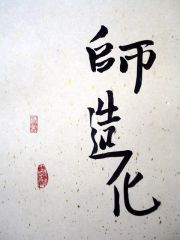 師造化